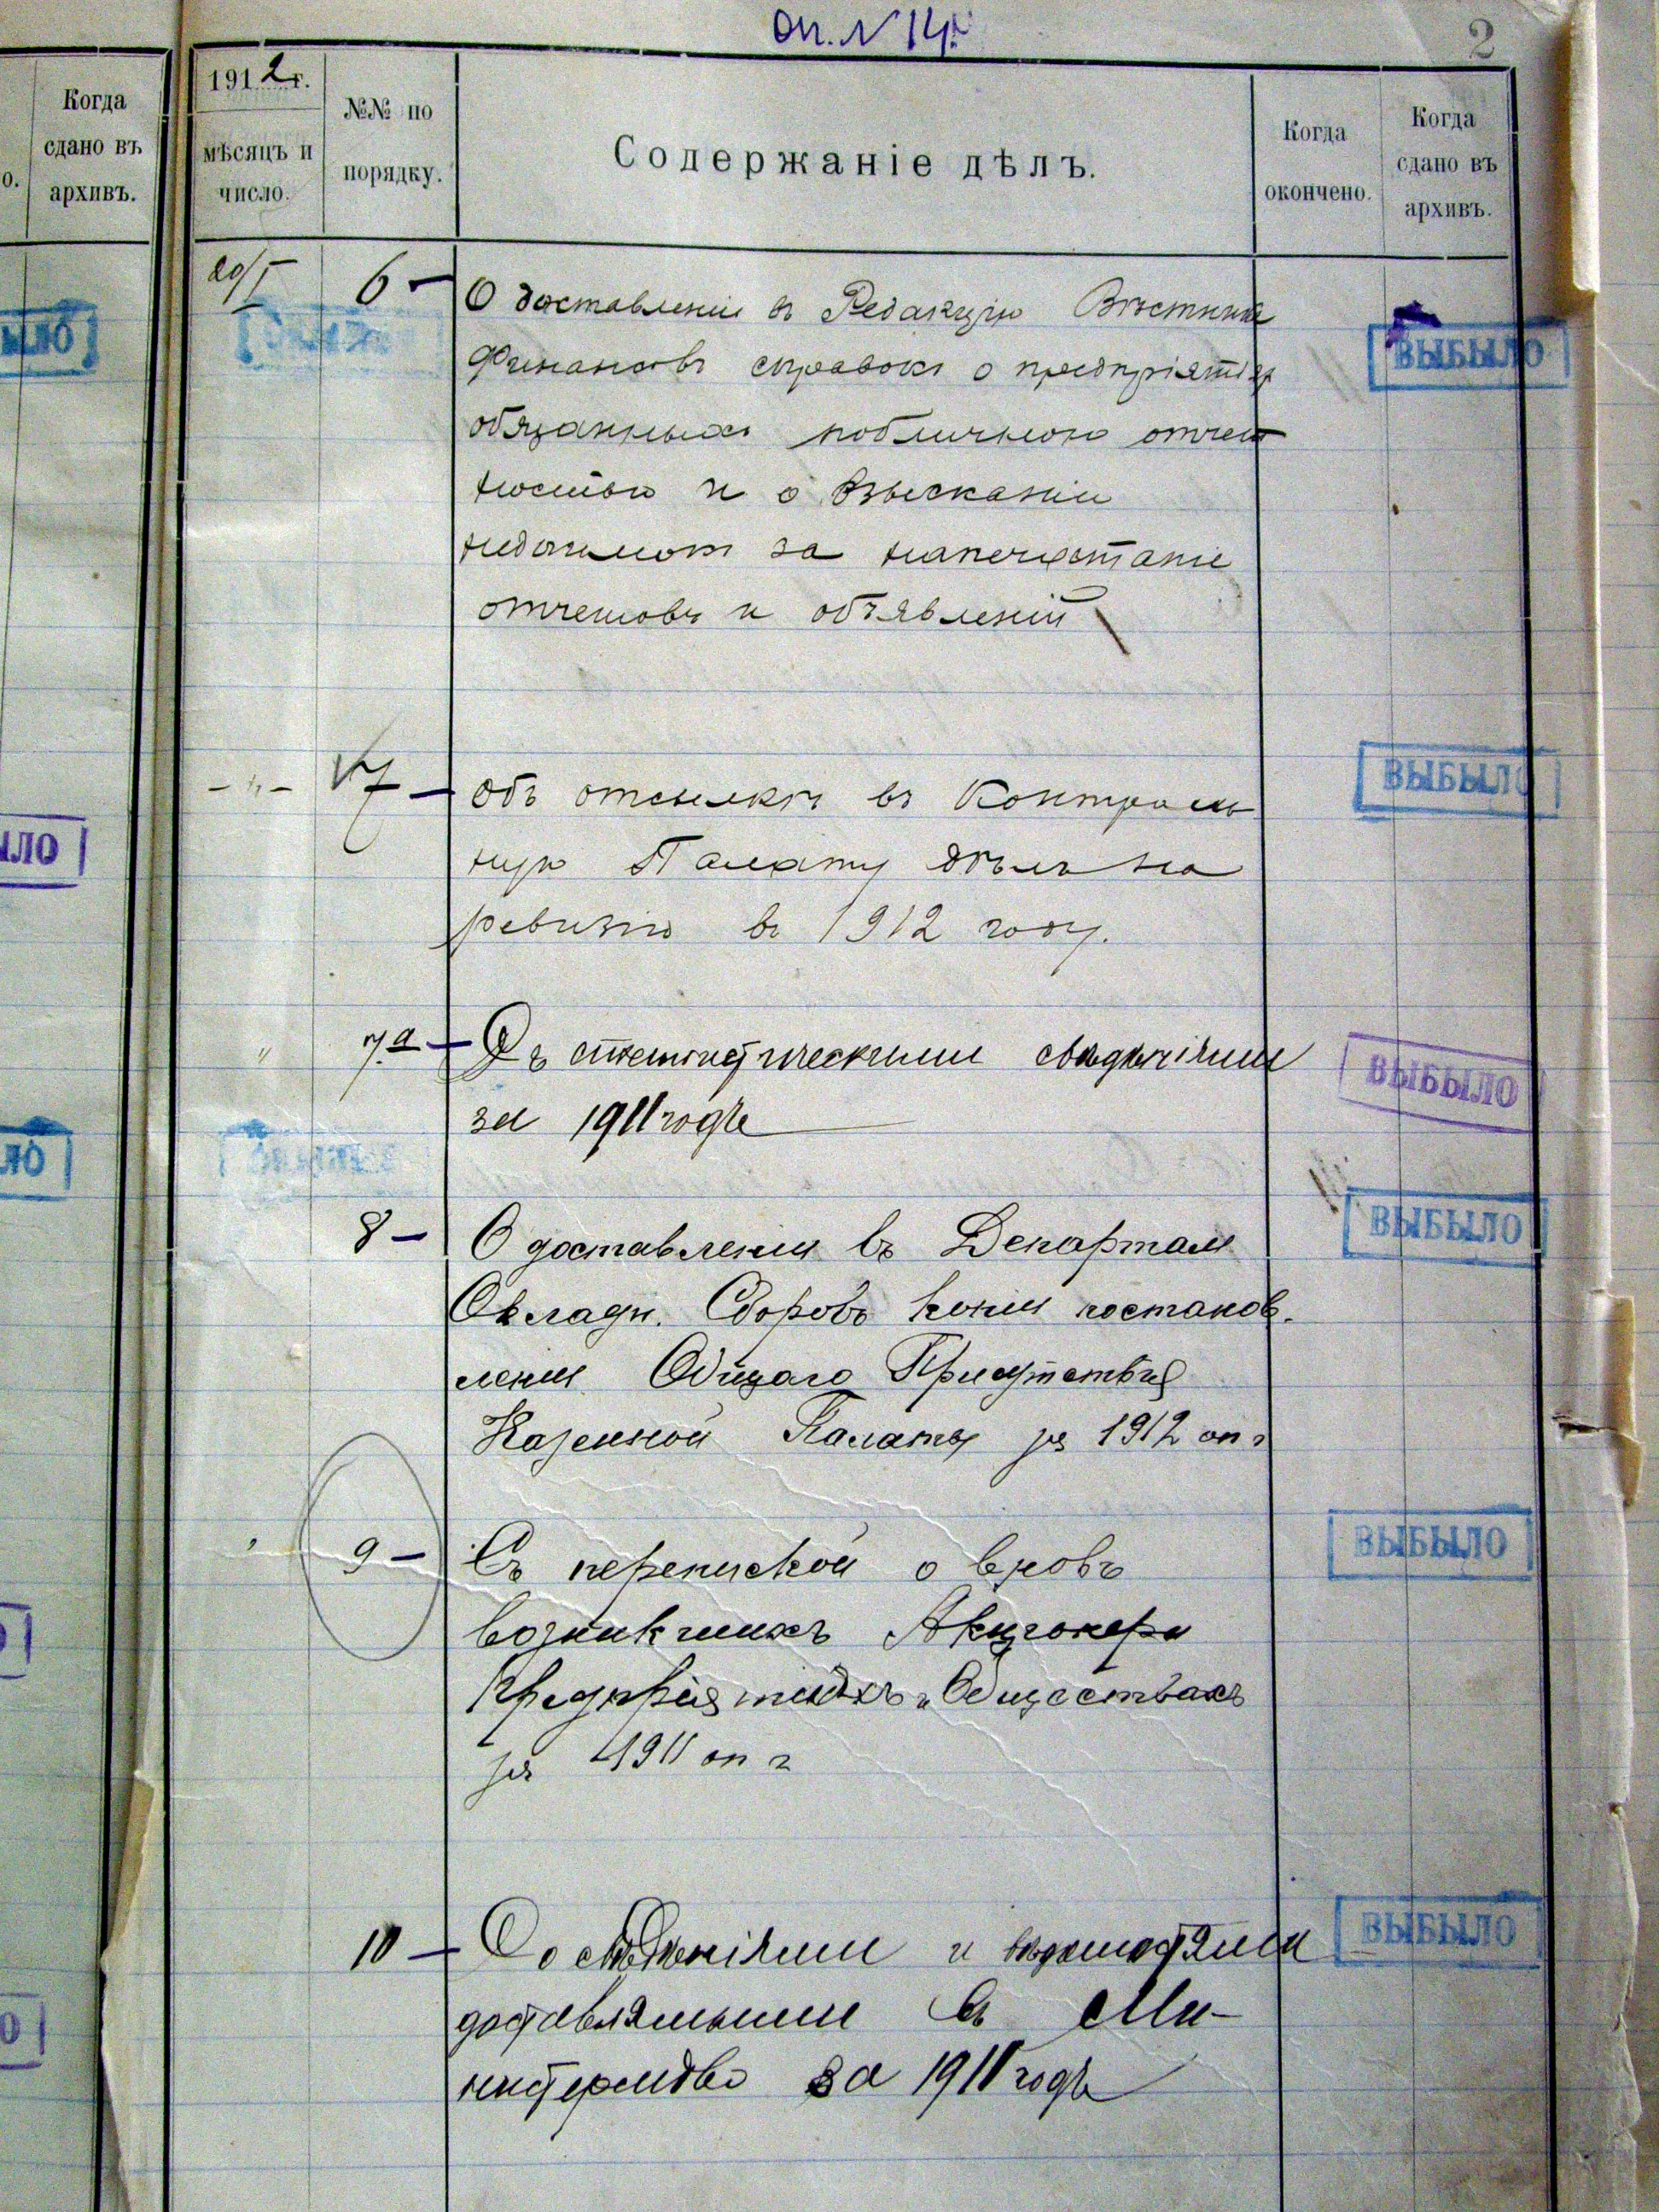 оп. № 14
2
Когда
сдано въ
архивъ.
о.
1912 г.
мѣсяцъ и
число.
№№ по
порядку.
Содержаніе дѣлъ.
Когда
окончено.
Когда
сдано въ
архивъ.
20/I
6 —
О доставленіи въ Редакцію Вѣстника
Финансовъ справокъ о предпріятія
обязанныхъ публичною отчет
ностью и о взысканіи
недоимокъ за напечатаніе
отчетовъ и объявленій
ВЫБЫЛО
ЫЛО
- " -
7 —
Объ отсылкѣ въ Контроль
ную Палату дѣлъ на
ревизію въ 1912 году.
ВЫБЫЛО
ЫЛО
"
7.а —
Съ статистическими свѣдѣніями
за 1911 годъ
ВЫБЫЛО
ЛО
8 —
О доставленіи въ Департам
Окладн. Сборовъ копіи постанов.
леніи Общаго Присутствія
Казенной Палаты за 1912 оп г
ВЫБЫЛО
"
9 —
Съ перепиской о вновь
возникшихъ Акціонерн
Предпріятіяхъ и Обществахъ
за 1911 оп г
ВЫБЫЛО
О
10 —
Со свѣдѣніями и вѣдомостями
доставляемыми въ Ми-
нистерство за 1911 годъ
ВЫБЫЛО
О